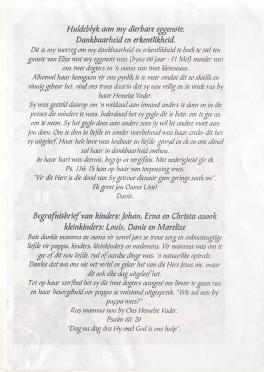 Huldeblyk aan my dierbare eggenote.
Dankbaarheid en erkentlikheid.
Dit is my voorreg om my dankbaarheid en erkentlikheid te boek te stel ten
gunste van Elize wat my eggenote was (byna 60 jaar - 11 Mei) moeder van
ons twee dogters en 'n ouma van twee kleinseuns.
Alhoewel haar heengaan vir ons pynlik is te meer omdat dit so skielik en
vinnig gebeur het, vind ons troos daarin dat sy nou veilig en in vrede rus by
haar Hemelse Vader.
Sy was gesteld daarop om 'n weldaad aan iemand anders te doen en in die
proses die mindere te wees. Inderdaad het sy geglo dit is beter om te gee as te
neem. Sy het geglo doen aan andere soos jy wil hê andere moet aan jou
doen. Om te dien in liefde en sonder voorbehoud was haar credo- dit het
sy uitgeleef. Haar hele lewe was kosbaar en liefde- gewyd en ek en ons almal
sal haar in dankbaarheid onthou.
In haar hart was deernis, begrip en vergifnis. Met nederigheid glo ek
Ps. 116: 15 kan op haar van toepassing wees.
"Vir die Here is die dood van Sy getroue dienaar geen geringe saak nie".
Ek groet jou Ounie Liefs!
Danie.
Begrafnisbrief van kinders: Johan, Erna en Christa asook
kleinkinders: Louis, Danie en Marelize
Baie dankie mamma en ouma vir soveel jare se trou sorg en onbaatsugtige
liefde vir pappa, kinders, kleinkinders en medemens. Vir mamma was om te
gee of dit nou liefde, tyd of aardse dinge was, 'n natuurlike optrede.
Dankie dat ma ons nie net vertel en geleer het van die Here Jesus nie, maar
dit ook elke dag uitgeleef het.
Tot op haar sterfbed het sy die twee dogters aangesê om liewer te gaan rus
en haar besorgdheid oor pappa se welstand uitgespreek. "Wie sal nou by
pappa wees?"
Rus mamma nou by Ons Hemelse Vader.
Psalm 68: 20
"Dag na dag dra Hy ons! God is ons hulp".